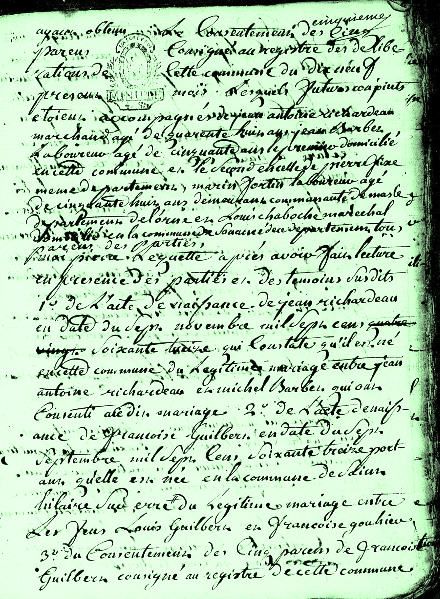 ayant obtenu Le Consentement des cinq
cinquieme
parens Consigné au registre des delibe
rations de Cette commune du dix neuf
presens mois Lesquels futurs conjoints
etoient accompagnes de jean antoine richardeau
marchand agé de quarante huit ans jean Barbes
Laboureur agé de cinquante ans le premier domicilié
en cette commune et le second en celle de pierre fixe
meme departement marin fortin laboureur agé
de cinquante huit ans demeurant commune de
departement de lorne et Louis chaboche marechal
en la commune de du departement tous
parens des parties
mai Lequel apres avoir fait lecture
en presence des parties et des temoins susdits
1° de L'acte de naissance de jean richardeau
en date du sept novembre mil sept cens quatre
vingt soixante treize qui Constate qu'il est né
en cette commune du Legitime mariage entre jean
antoine richardeau et michel Barbes qui ont
Consenti audit mariage 2° de L'acte de nais
sance de francoise Guilbert en date du sept
septembre mil sept Cens soixante treize port
ant quelle est nee en la commune de saint
hilaire sur erre du Legitime mariage entre
Les feus Louis Guilbert et francoise gouhier
3° du Consentement des Cinq parens de francoise
Guilbert consigné au registre de cette commune